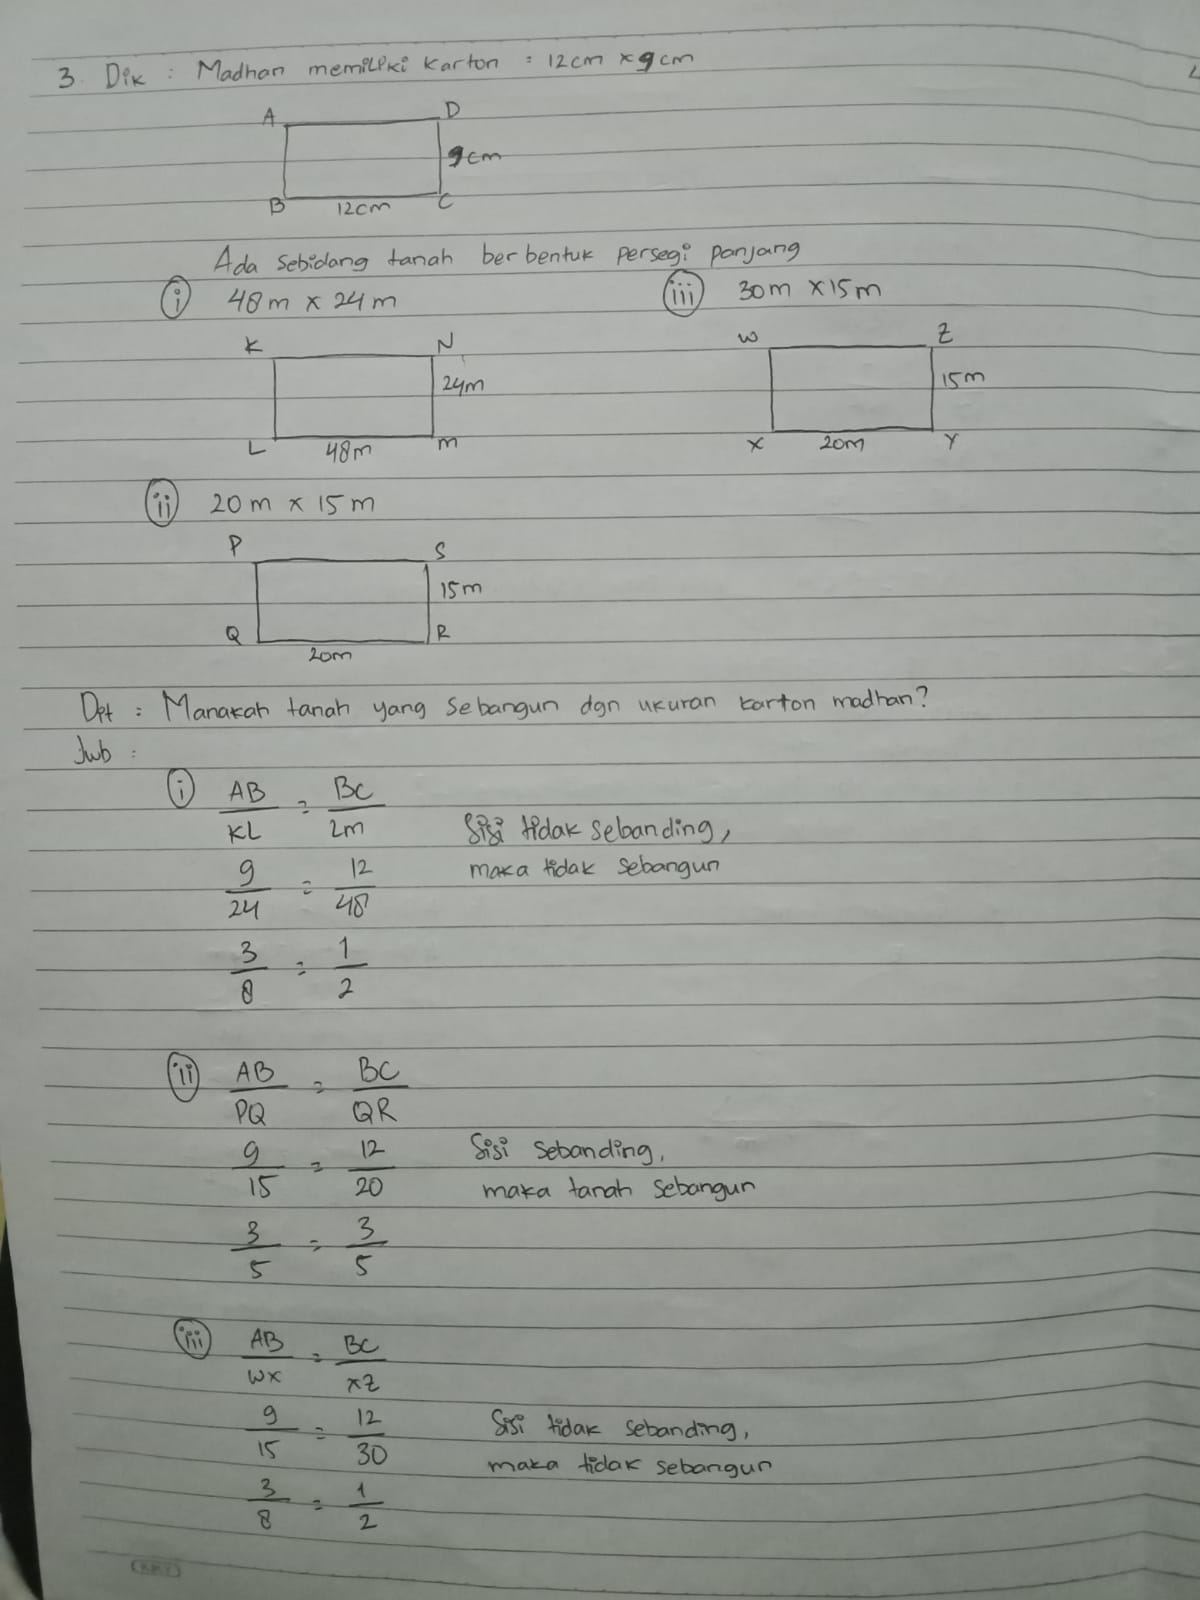 3. Dik : Madhan memiliki karton : 12cm x 9cm
A D
9cm
B 12cm C
Ada sebidang tanah berbentuk persegi panjang
i 48m x 24m
iii 30m x 15m
K N
24m
L 48m M
W Z
15m
X 20m Y
ii 20m x 15m
P S
15m
Q 20m R
Dpt : Manakah tanah yang sebangun dgn ukuran karton madhan?
Jwb :
i AB/KL = BC/LM
Sisi tidak sebanding,
9/24 = 12/48
maka tidak sebangun
3/8 = 1/2
ii AB/PQ = BC/QR
9/15 = 12/20
Sisi sebanding,
maka tanah sebangun
3/5 = 3/5
iii AB/WX = BC/XZ
9/15 = 12/30
Sisi tidak sebanding,
maka tidak sebangun
3/8 = 1/2